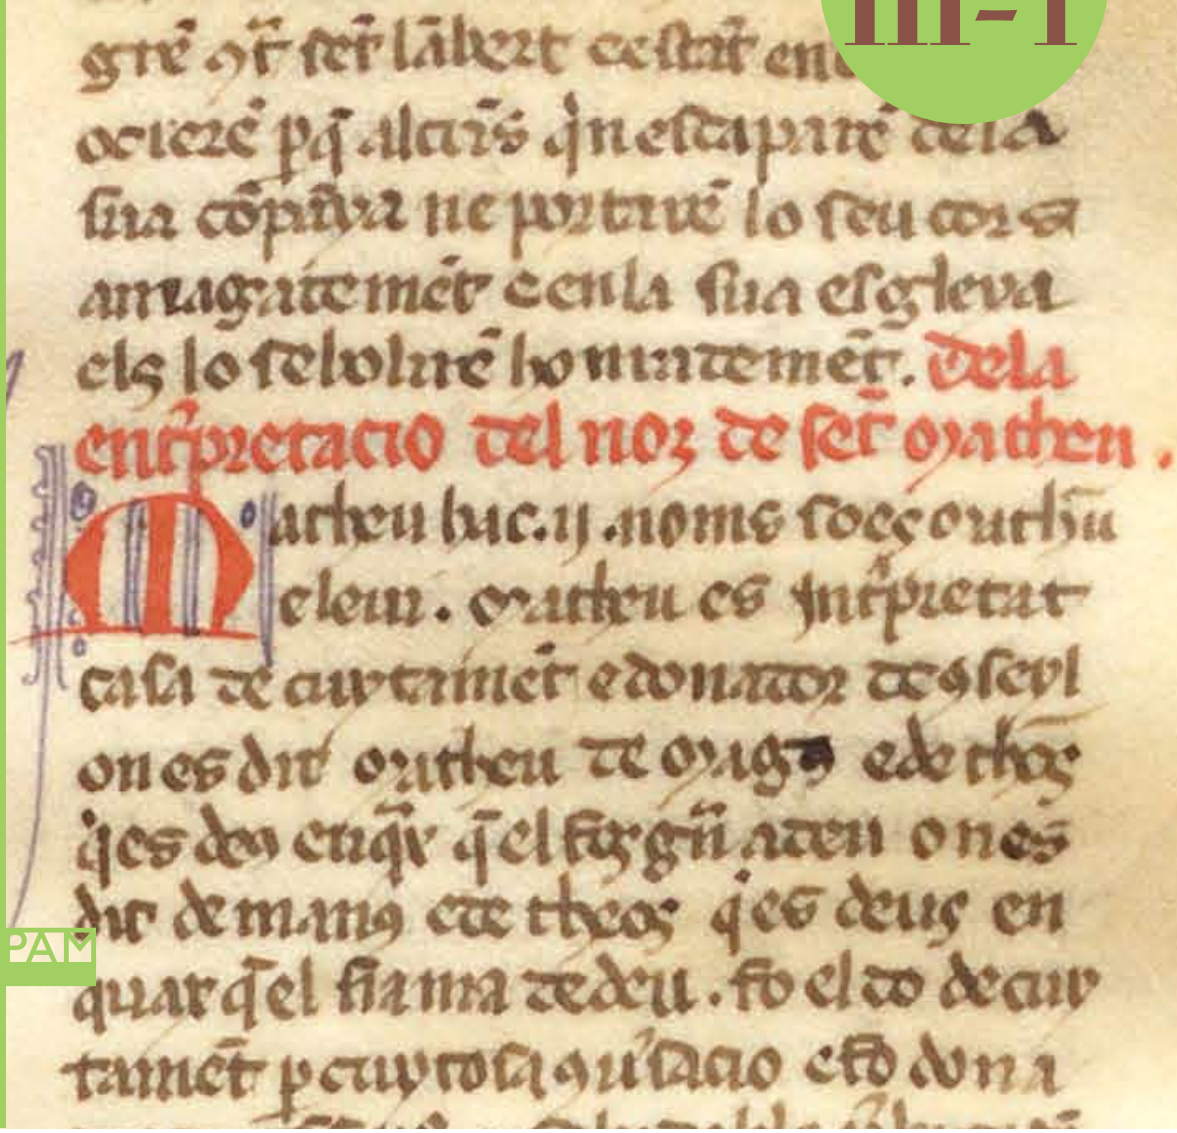 III-I
grē ꝯtͬ set lābert e estāt en
ocierē ꝑq̄ alcūs qͥn escaparē dela
sua cōpaya ne portarē lo seu cors
amagatemēt e en la sua esgleya
els lo sebolirē honratemēt. Dela
entͥpretacio del nom de set Matheu.
Matheu hac .ij. noms so es Mathū
e leui. Matheu es intͥpretat
casa de cuytamēt e donador de ꝯseyl
on es dit Matheu de magꝰ e de theos
qͥ es deu enaqͣx q̄ el fos gn̄ a deu on es
dit de manꝰ e de theos qͥ es deus en
quax q̄ el fi a ma de deu. fo el do de cuy
tamēt ꝑ cuytosa ꝯuͥsacio e fo dona
PAM